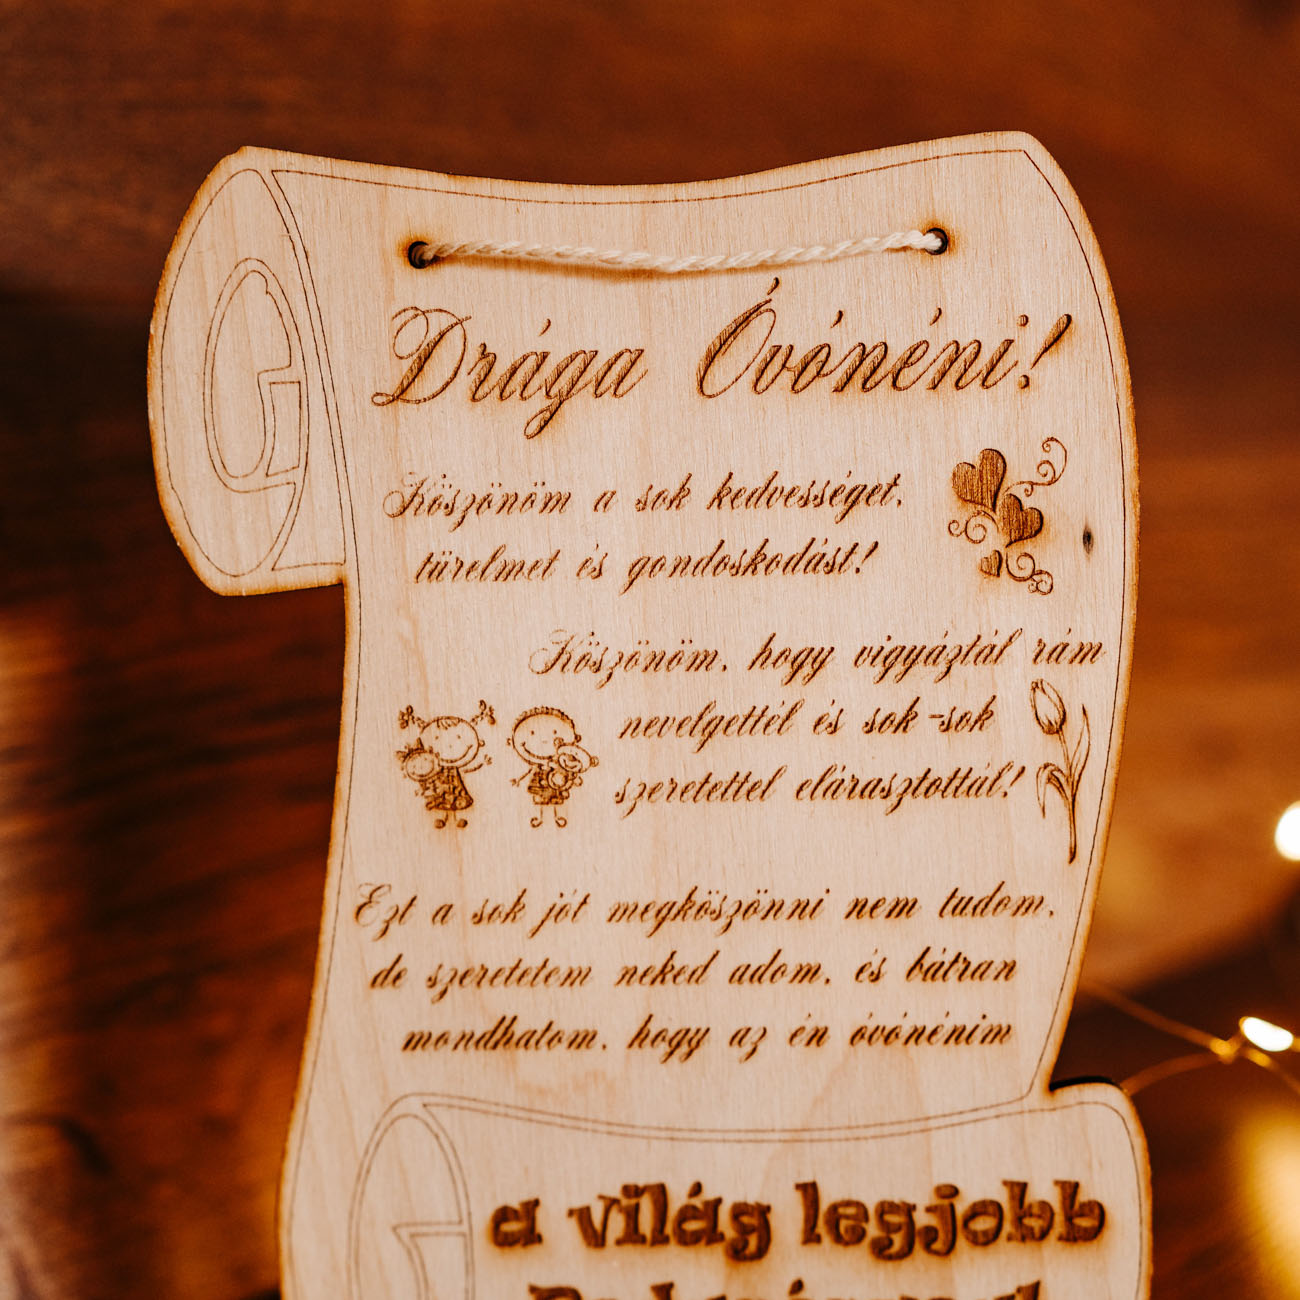 Drága Óvónéni!
Köszönöm a sok kedvességet,
türelmet és gondoskodást!
Köszönöm, hogy vigyáztál rám
nevelgettél és sok-sok
szeretettel elárasztottál!
Ezt a sok jót megköszönni nem tudom,
de szeretetem neked adom, és bátran
mondhatom, hogy az én óvónénim
a világ legjobb